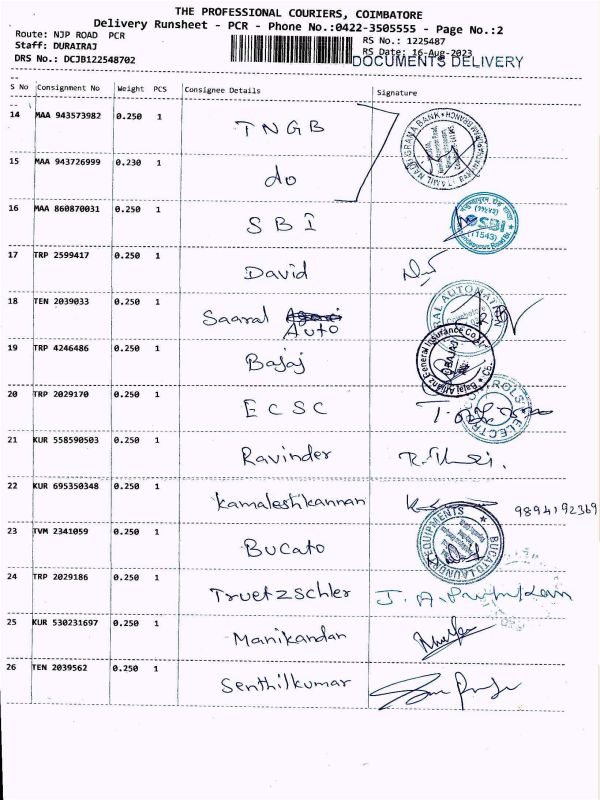 THE PROFESSIONAL COURIERS, COIMBATORE
Delivery Runsheet - PCR - Phone No.:0422-3505555 - Page No.:2
Route: NJP ROAD PCR
RS No.: 1225487
Staff: DURAIRAJ
RS Date: 16-Aug-2023
DRS No.: DCJB122548702
DOCUMENTS DELIVERY
S No Consignment No Weight PCS Consignee Details Signature
14 MAA 943573982 0.250 1 TNGB
15 MAA 943726999 0.230 1 do
16 MAA 860870031 0.250 1 SBI
SBI
(1543)
17 TRP 2599417 0.250 1 David
18 TEN 2039033 0.250 1 Saaral
Auto
19 TRP 4246486 0.250 1 Bajaj
Bajaj Allianz General Insurance Co.
20 TRP 2029170 0.250 1 ECSC
21 KUR 558590503 0.250 1 Ravinder
22 KUR 695350348 0.250 1 Kamaleshkannan
9894192369
23 TVM 2341059 0.250 1 Bucato
BUCATO LAUNDRY EQUIPMENTS
24 TRP 2029186 0.250 1 Truetzschler
25 KUR 530231697 0.250 1 Manikandan
26 TEN 2039562 0.250 1 Senthilkumar